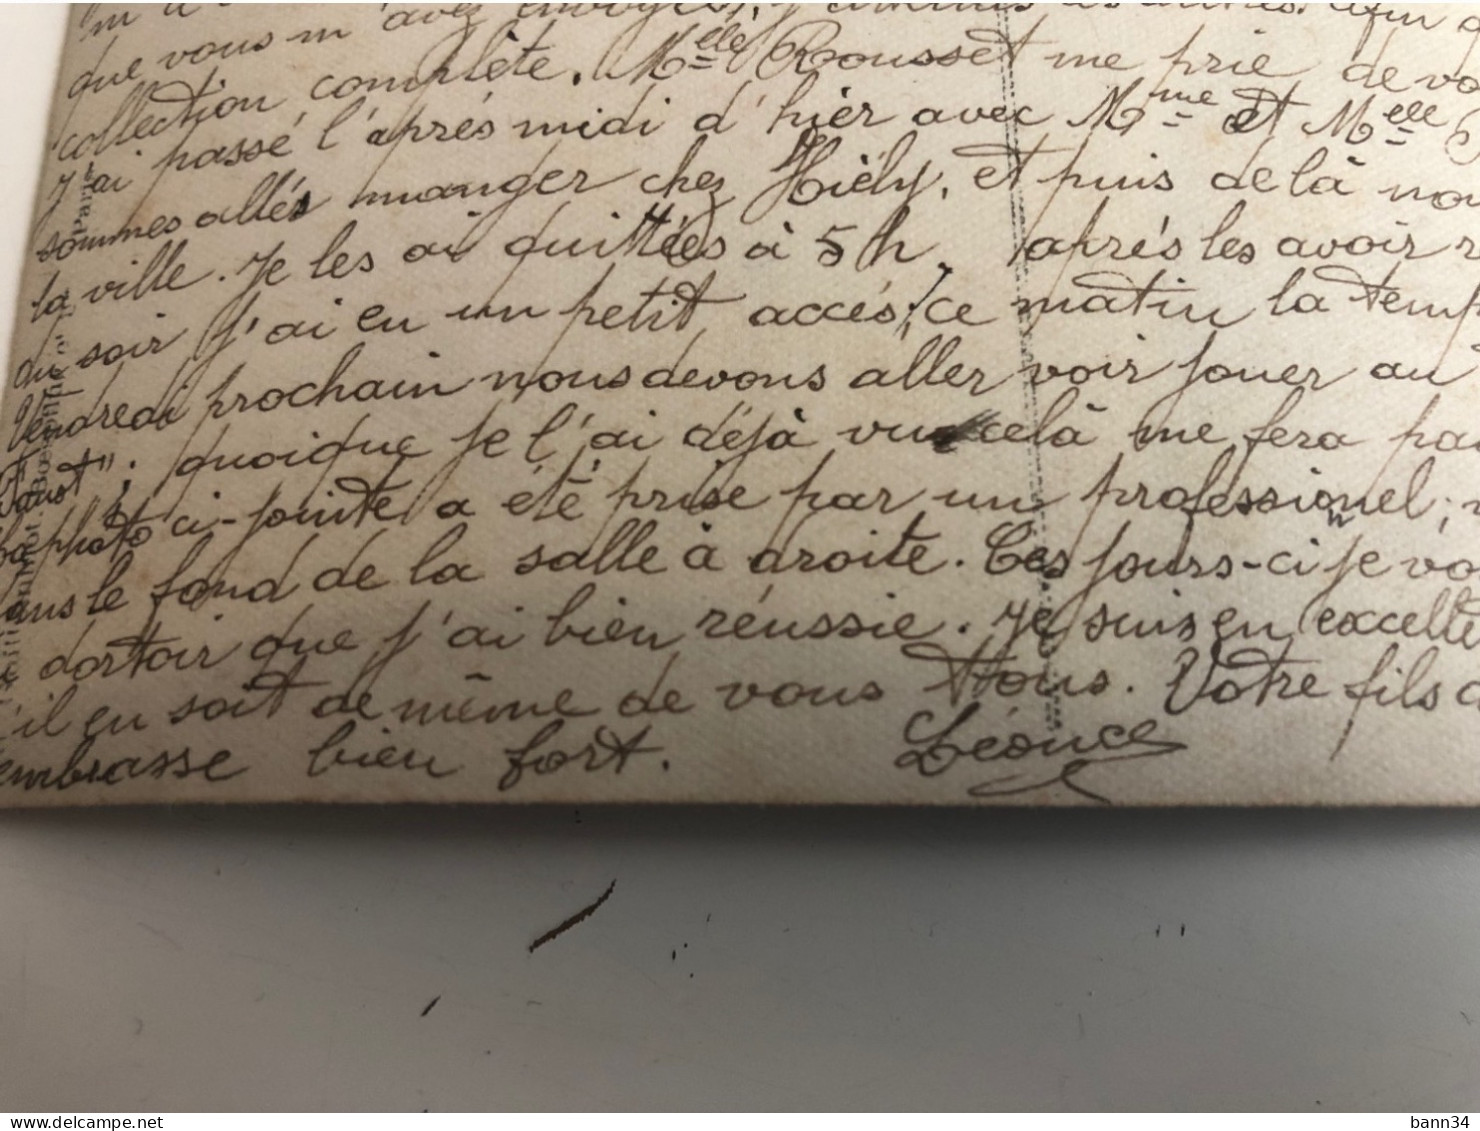 que vous m'avez envoyés, j'attends les autres. afin q
collection complète. Melle Rousset me prie de vo
J'ai passé l'après midi d'hier avec Mme et Melle
sommes allés manger chez Hiély, et puis de là nou
la ville. Je les ai quittées à 5h. après les avoir r
au soir j'ai eu un petit accès, ce matin la temp
Vendredi prochain nous devons aller voir jouer au
"Faust"; quoique je l'ai déjà vu celà me fera pa
La photo ci-jointe a été prise par un professionnel;
dans le fond de la salle à droite. Ces jours-ci je vo
dortoir que j'ai bien réussie. Je suis en excelle
qu'il en soit de même de vous tous. Votre fils q
embrasse bien fort. Léonce
bann34